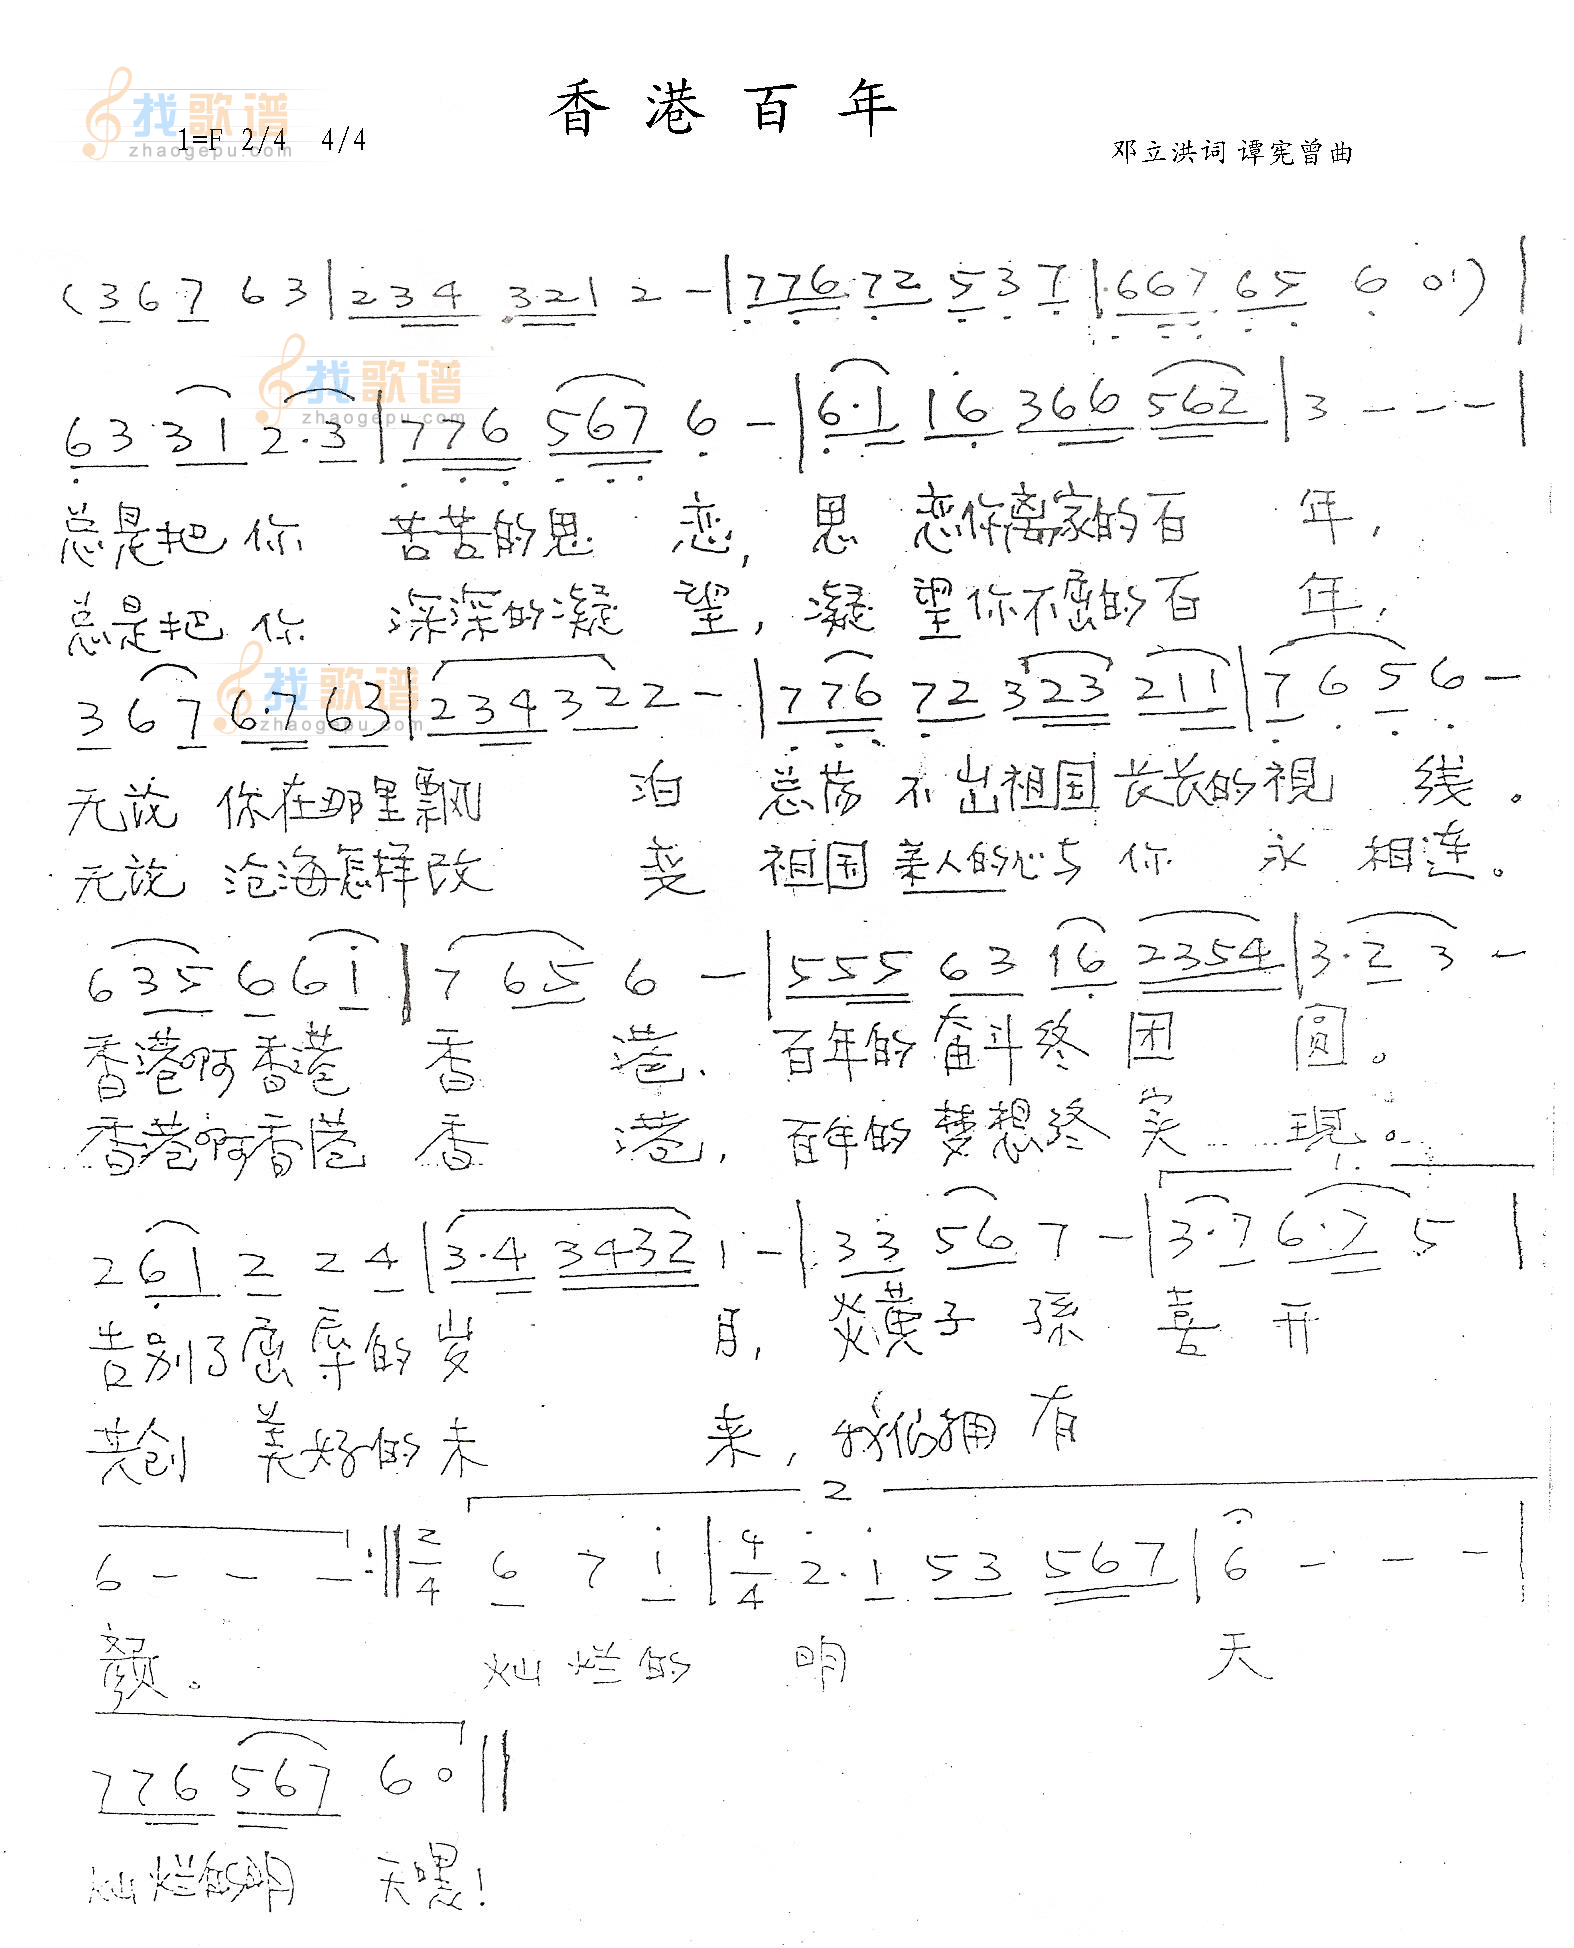 香港百年
找歌谱
zhaogepu.com
1=F 2/4 4/4
邓立洪词 谭宪曾曲
(3 6 7 6 3 | 2 3 4 3 2 1 2 - | 7 7 6 7 2 5 3 7 | 6 6 7 6 5 6 0 )|
找歌谱
zhaogepu.com
6 3 3 1 2·3 | 7 7 6 5 6 7 6 - | 6·1 1 6 3 6 6 5 6 2 | 3 - - - |
总是把你 苦苦的思恋, 思恋你离家的百年,
总是把你 深深的凝望, 凝望你不屈的百年,
找歌谱
zhaogepu.com
3 6 7 6·7 6 3 | 2 3 4 3 2 2 - | 7 7 6 7 2 3 2 3 2 1 1 | 7 6 5 6 -
无论 你在那里飘泊 总荡不出祖国长长的視线。
无论 沧海怎样改变 祖国亲人的心与你永相连。
6 3 5 6 6 i | 7 6 5 6 - | 5 5 5 6 3 1 6 2 3 5 4 | 3·2 3 -
香港啊香港 香港. 百年的奋斗终团圆。
香港啊香港 香港, 百年的梦想终实現。
1.
2 6 1 2 2 4 | 3·4 3 4 3 2 1 - | 3 3 5 6 7 - | 3·7 6·7 5 |
告别了屈辱的岁月, 炎黄子孫喜开
共创 美好的未来, 我们拥有
2
6 - - - :|| 2/4 6 7 i | 4/4 2·i 5 3 5 6 7 | 6 - - - |
颜。 灿烂的明天
7 7 6 5 6 7 6 0 ||
灿烂的明天嘿!